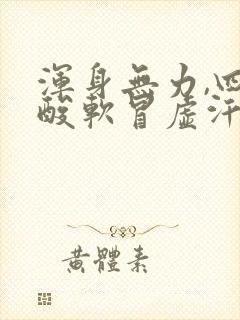 渾身無力,四
酸軟冒虛汗
黃體素